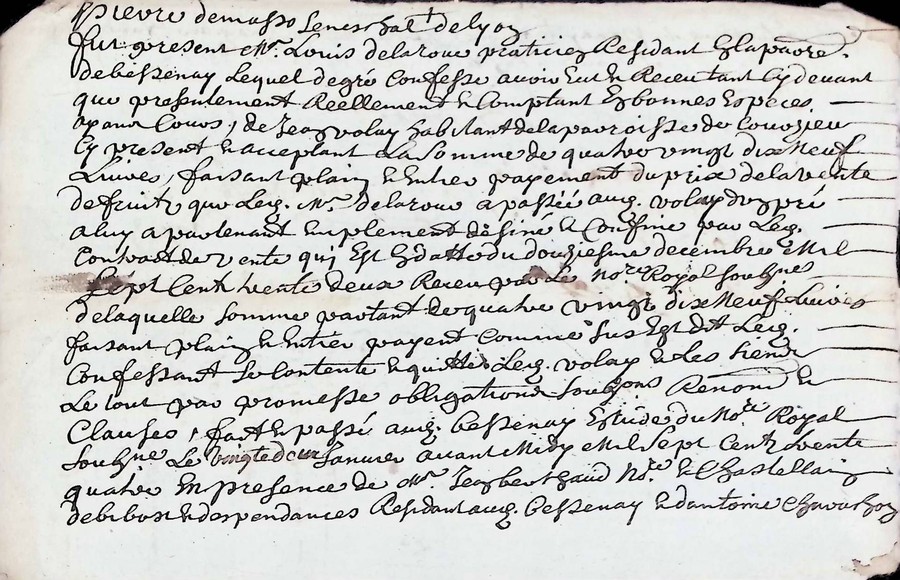 pierre demasso Seneschal de lyon
fut present Mr. Louis delaroue praticien Residant En la parre.
de bessenay Lequel de gré Confesse avoir Eut & Receu tant Cy devant
que presentement Reellement & Comptant En bonnes Especes
ayant Cours, de Jean volay habitant de la parroisse de Couzieu
Cy present & acceptant La Somme de quatre vingt dix Neuf
Livres, faisant plain & Entier payement du prix de la vente
de fruit que Led. Mr. delaroue a passée aud. volay d'un pré
a luy apartenant Emplement désiné & Confiné par Led.
Contract de vente qui Est En datte du douziesme decembre Mil
Sept Cent trente deux Receu par Le Nore. Royal Soubzne
de laquelle Somme partant de quatre vingt dix Neuf Livres
faisant plain & Entier payent Comme Sus Est dit Led.
Confessant Se Contente & quitte Led. volay & Les Siens
Le tout par promesse obligations Soubzons Renond. &
Clauses, fait & passé aud. bessenay Estude du Nore. Royal
Soubzne Le vingt deux Janvier avant Midy Mil Sept Cent trente
quatre En presence de Mr. Jean berthaud Nore. & Chastellain
de bibost & despendances Residant aud. bessenay & d'antoine Chavachon